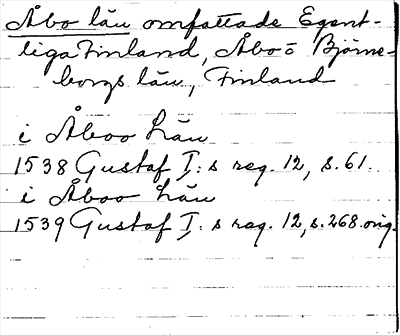 Åbo län omfattade Egent-
liga Finland, Åbo o Björne-
borgs län, Finland
i Åboo Län
1538 Gustaf I:s reg. 12, s. 61.
i Åboo Län
1539 Gustaf I:s reg. 12, s. 268. orig.